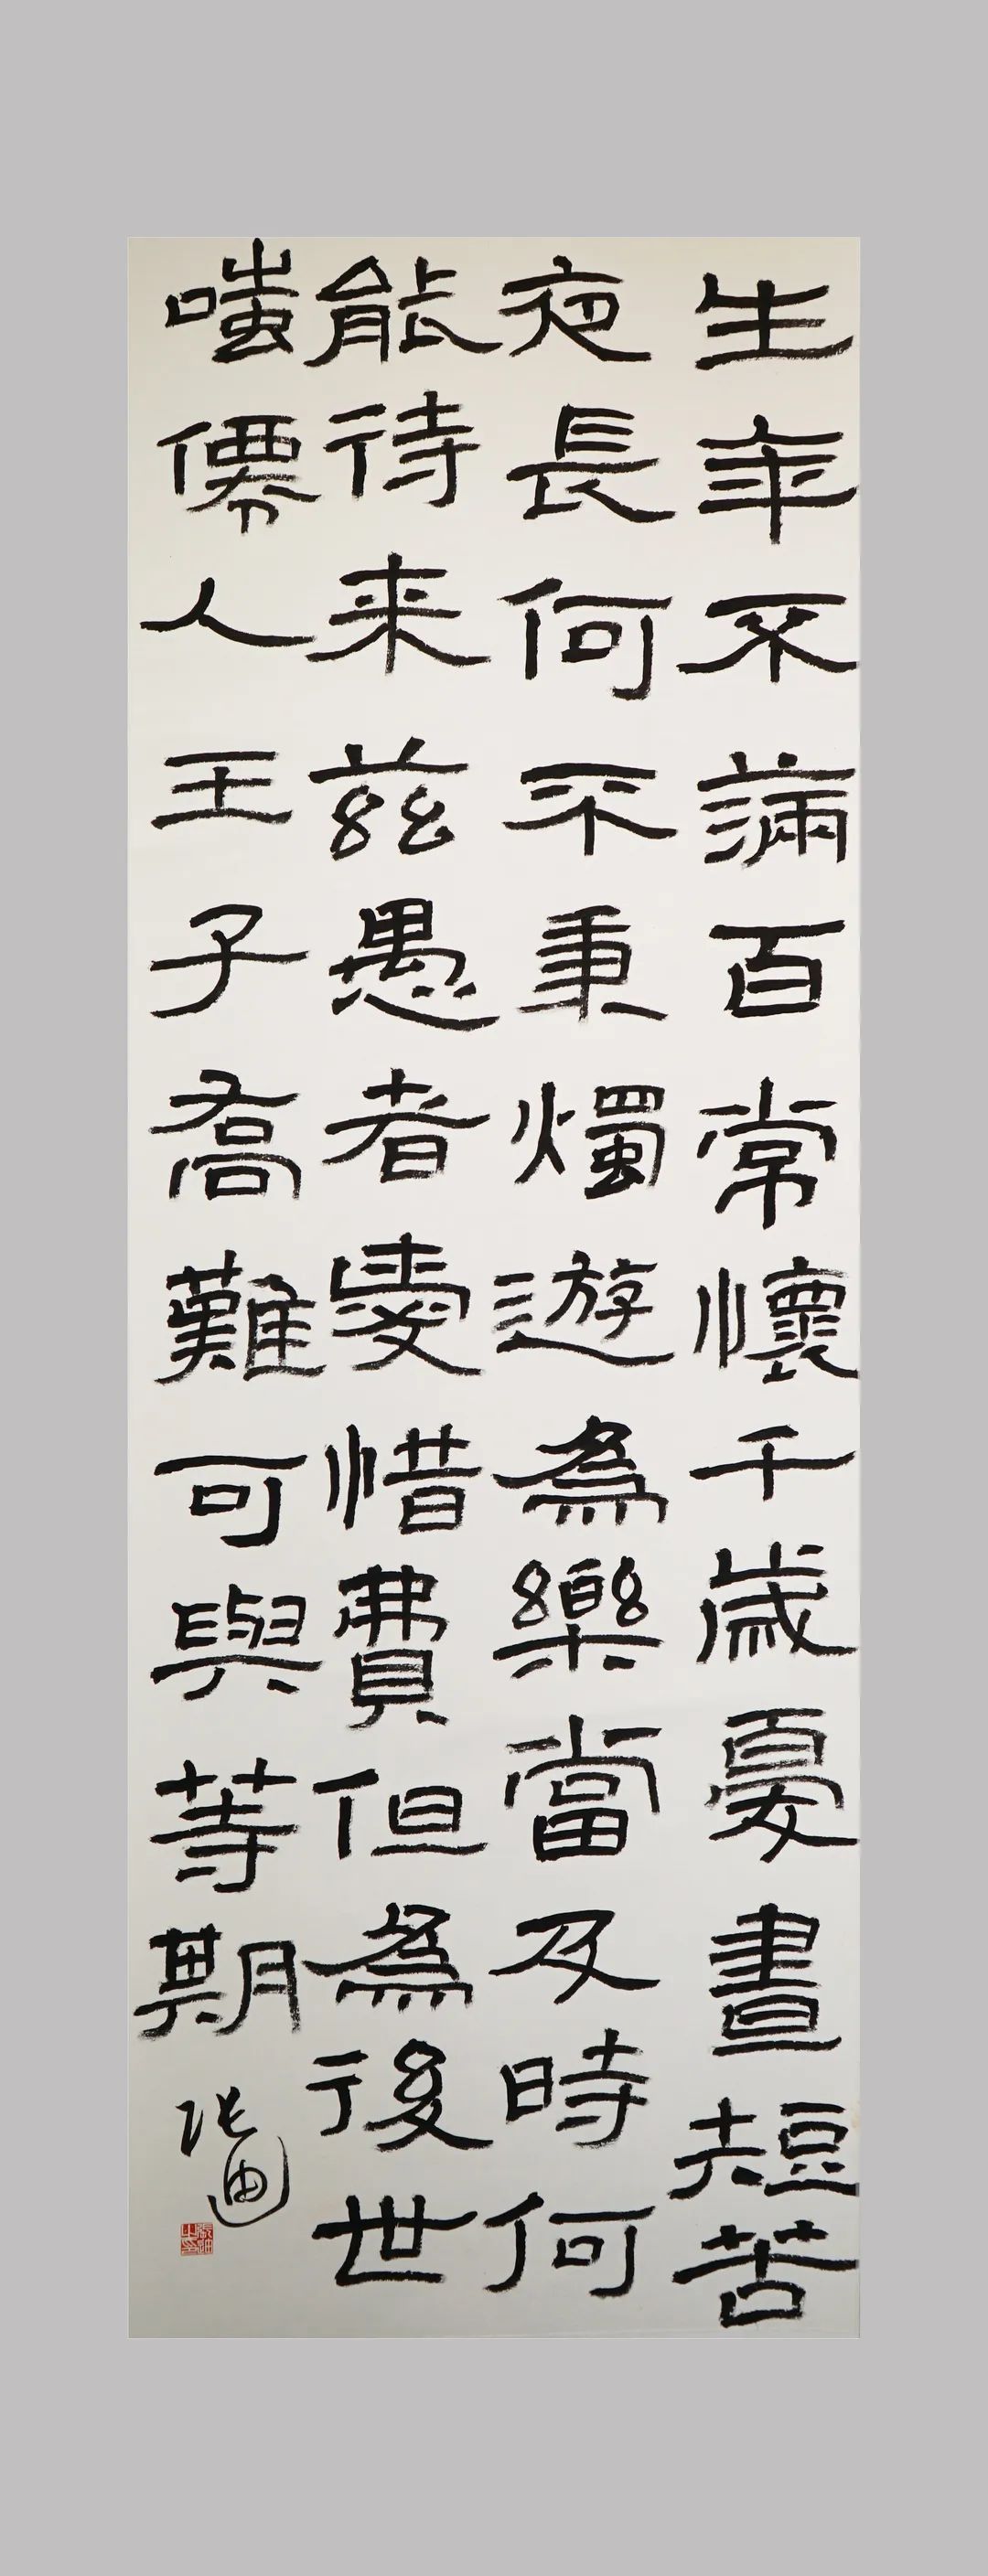 生年不滿百常懷千歲憂晝短苦
夜長何不秉燭遊為樂當及時何
能待来兹愚者愛惜費但為後世
嗤僊人王子喬難可與等期
张迪